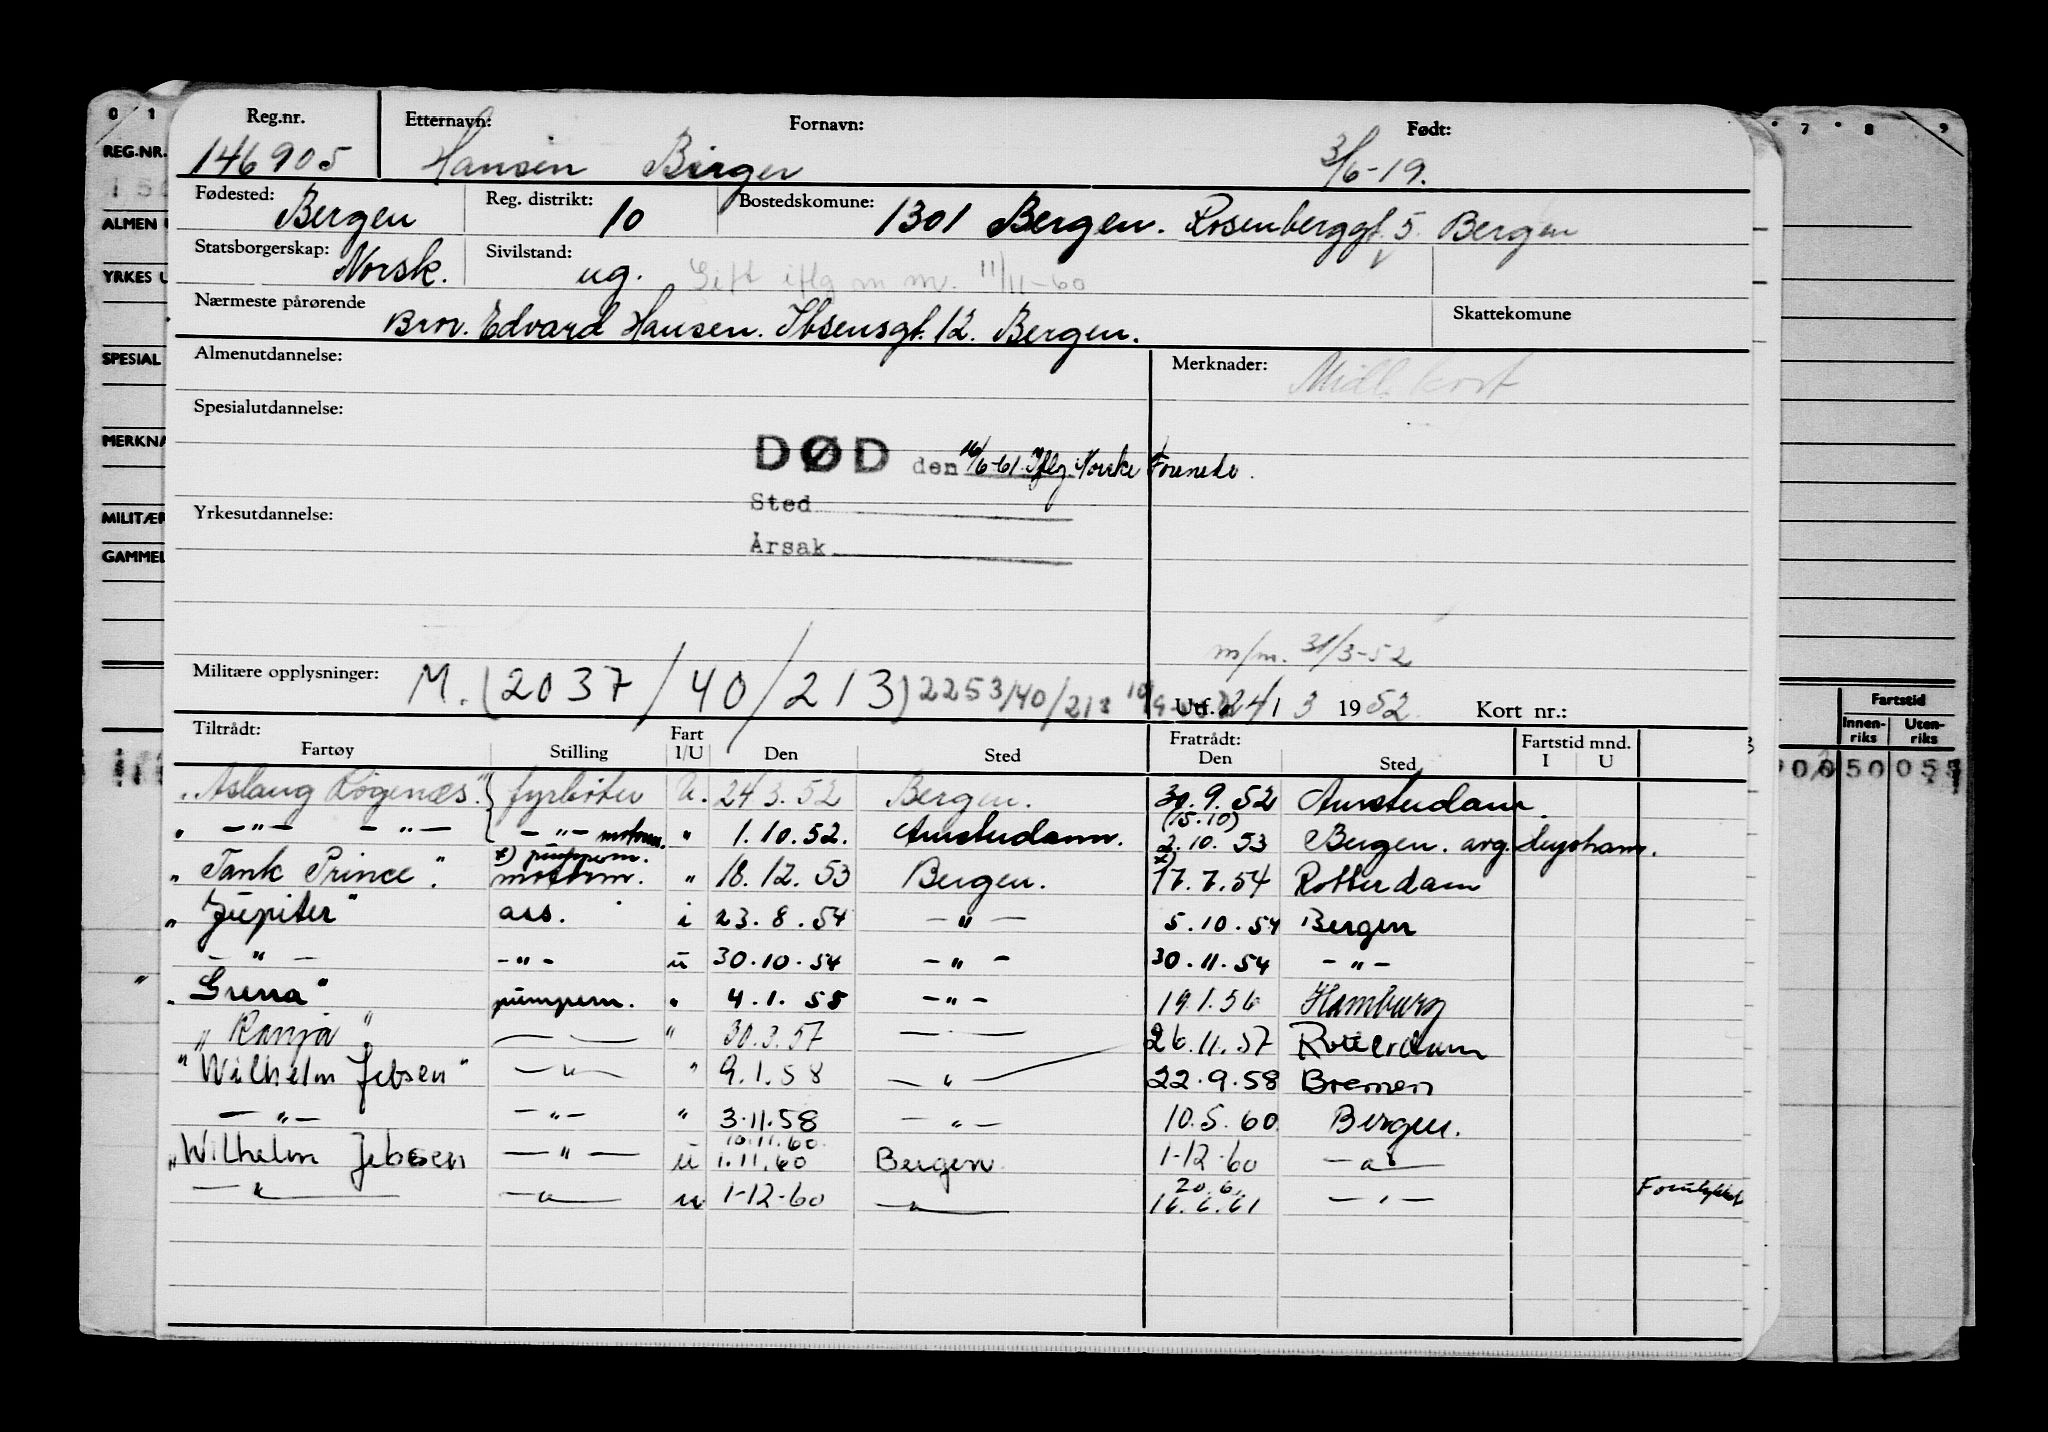 0 1
7 8 9
REG.NR.
ALMEN
YRKES U
SPESIAL
MERKNA
MILITÆR
GAMMEL
Reg.nr. Etternavn: Fornavn: Født:
146905 Hansen Birger 3/6-19.
Fødested: Bergen Reg. distrikt: 10 Bostedskomune: 1301 Bergen. Rosenberggt. 5. Bergen
Statsborgerskap: Norsk. Sivilstand: ug. Gift iflg m.m. 11/11-60
Nærmeste pårørende Bror. Edvard Hansen. Ibsensgt. 12. Bergen. Skattekomune
Almenutdannelse: Merknader: Midl. kort
Spesialutdannelse:
DØD den 16/6-61. Iflg. Norske Forenede.
Sted
Yrkesutdannelse:
Årsak
m/m. 31/3-52
Militære opplysninger: M. (2037/40/213) 2253/40/213 Utf. 24/3 1952 Kort nr.:
Tiltrådt: Fratrådt: Fartstid mnd.
Fartøy Stilling Fart I/U Den Sted Den Sted I U
Fartstid
Innen-riks Uten-riks
50 055
"Aslaug Rogenæs" fyrbøter U. 24.3.52 Bergen. 30.9.52 Amsterdam.
(15.10)
" -"- -"- -"- motorm. " 1.10.52. Amsterdam. 2.10.53 Bergen. avg.
x) pumpem. x)
"Tank Prince". motorm. " 18.12.53 Bergen. 17.7.54 Rotterdam
"Jupiter" ass. i 23.8.54 -"- 5.10.54 Bergen
-"- -"- u 30.10.54 -"- 30.11.54 -"-
"Grena" pumpem. " 4.1.55 -"- 19.1.56 Hamburg
"Ranja" " 30.3.57 26.11.57 Rotterdam
"Wilhelm Jebsen" -"- " 9.1.58 -"- 22.9.58 Bremen
-"- -"- " 3.11.58 -"- 10.5.60 Bergen.
10.11.60
"Wilhelm Jebsen -"- u 1.11.60 Bergen 1-12-60 -"-
20.6.
-"- -"- u 1-12-60 -"- 16.6.61 -"- Forulykket